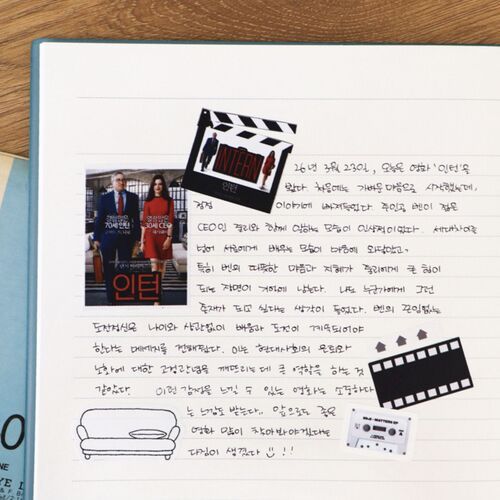 INTERN
인턴
경험많은
70세 인턴
열정많은
30세 CEO
인턴
26년 3월 23일, 오늘은 영화 '인턴'을
봤다. 처음에는 가벼운 마음으로 시작했는데,
점점 이야기에 빠져들었다. 주인공 벤이 젊은
CEO인 줄리와 함께 일하는 모습이 인상적이었다. 세대차이를
넘어 서로에게 배우는 모습이 마음에 와닿았고,
특히 벤의 따뜻한 마음과 지혜가 줄리에게 큰 힘이
되는 장면이 기억에 남는다. 나도 누군가에게 그런
존재가 되고 싶다는 생각이 들었다. 벤의 끊임없는
도전정신은 나이와 상관없이 배움과 도전이 계속되어야
한다는 메세지를 전해줬다. 이는 현대사회의 은퇴와
노화에 대한 고정관념을 깨뜨리는데 큰 역할을 하는 것
같았다. 이런 감정을 느낄 수 있는 영화는 소중하다
는 느낌도 받는다.. 앞으로도 좋은
영화 많이 찾아봐야겠다는
다짐이 생겼다 !!
NE